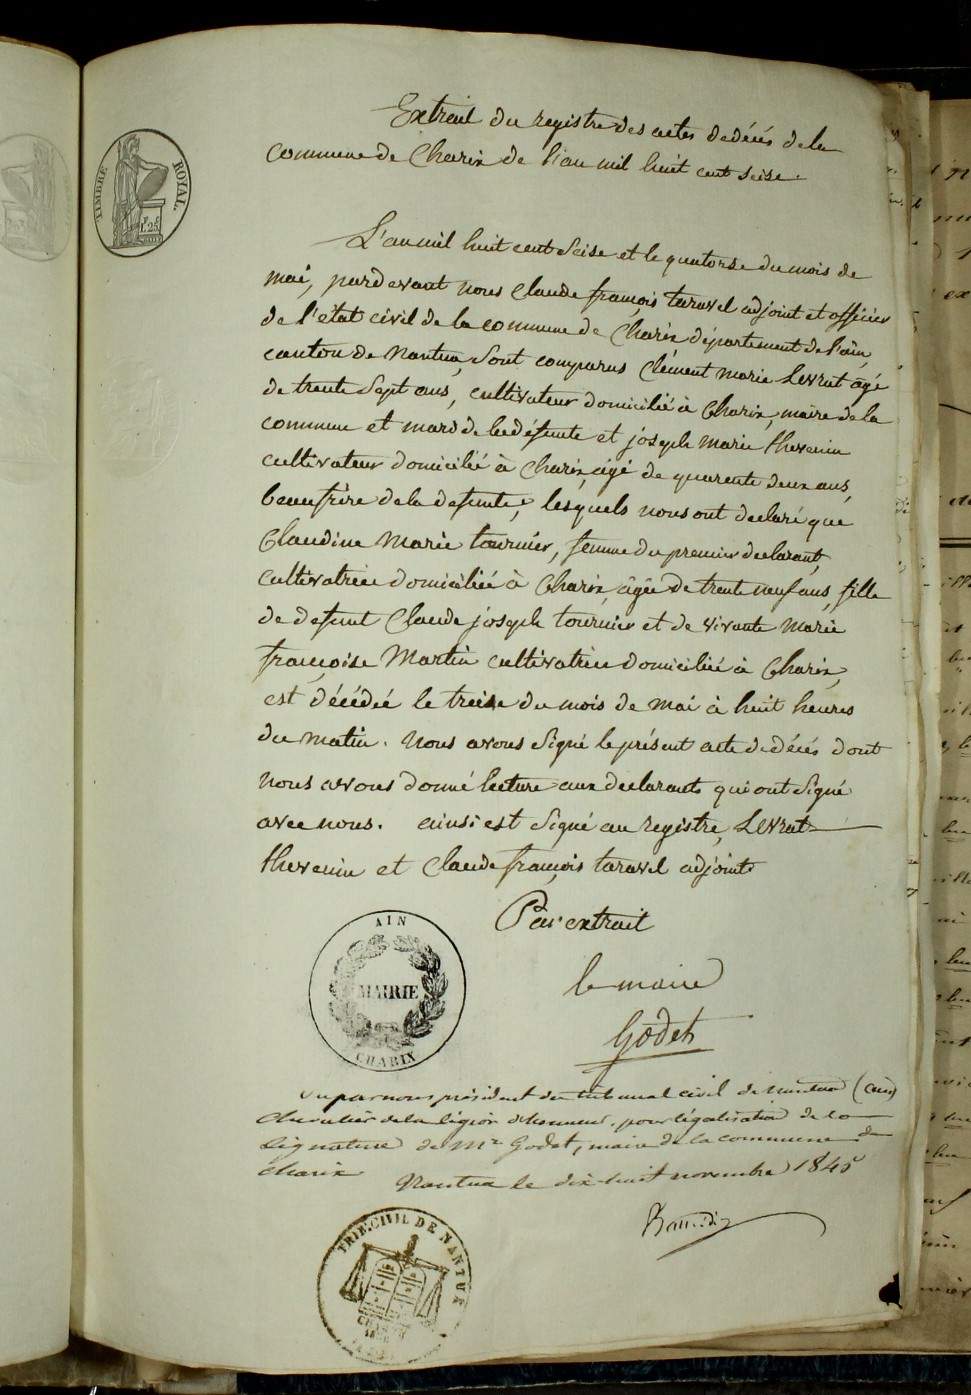 TIMBRE ROYAL.
1F. 25C
Extrait du registre des actes de décés de la
commune de Charix de l'an mil huit cent seise.
L'an mil huit cent Seise et le quatorse du mois de
mai, pardevant nous Claude françois taravel adjoint et officier
de l'état civil de la commune de Charix département de l'ain,
canton de Nantua, Sont comparus Clément Marie Levrat âgé
de trente Sept ans, cultivateur domicilié à Charix, maire de la
commune et mari de la défunte et joseph Marie thevenin
cultivateur domicilié à Charix, agé de quarente deux ans,
beaufrère de la defunte, lesquels nous ont declaré que
Claudine Marie tournier, femme du premier declarant,
cultivatrice domiciliée à Charix, âgée de trente neuf ans, fille
de defunt Claude joseph tournier et de vivante Marie
françoise Martin cultivatrice domiciliée à Charix,
est décédée le treise du mois de mai à huit heures
du matin. Nous avons Signé le présent acte de décés dont
nous avons donné lecture aux declarants qui ont Signé
avec nous. ainsi est Signé au registre, Levrat
thevenin et Claude françois taravel adjoint
Par extrait
AIN
MAIRIE
CHARIX
le maire
Godet
Vu par nous président du tribunal civil de nantua (ain)
chevalier de la légion d'honneur, pour légalisation de la
Signature de Mr Godet, maire de la commune de
Charix
Nantua le dix huit novembre 1845
TRIB. CIVIL DE NANTUA